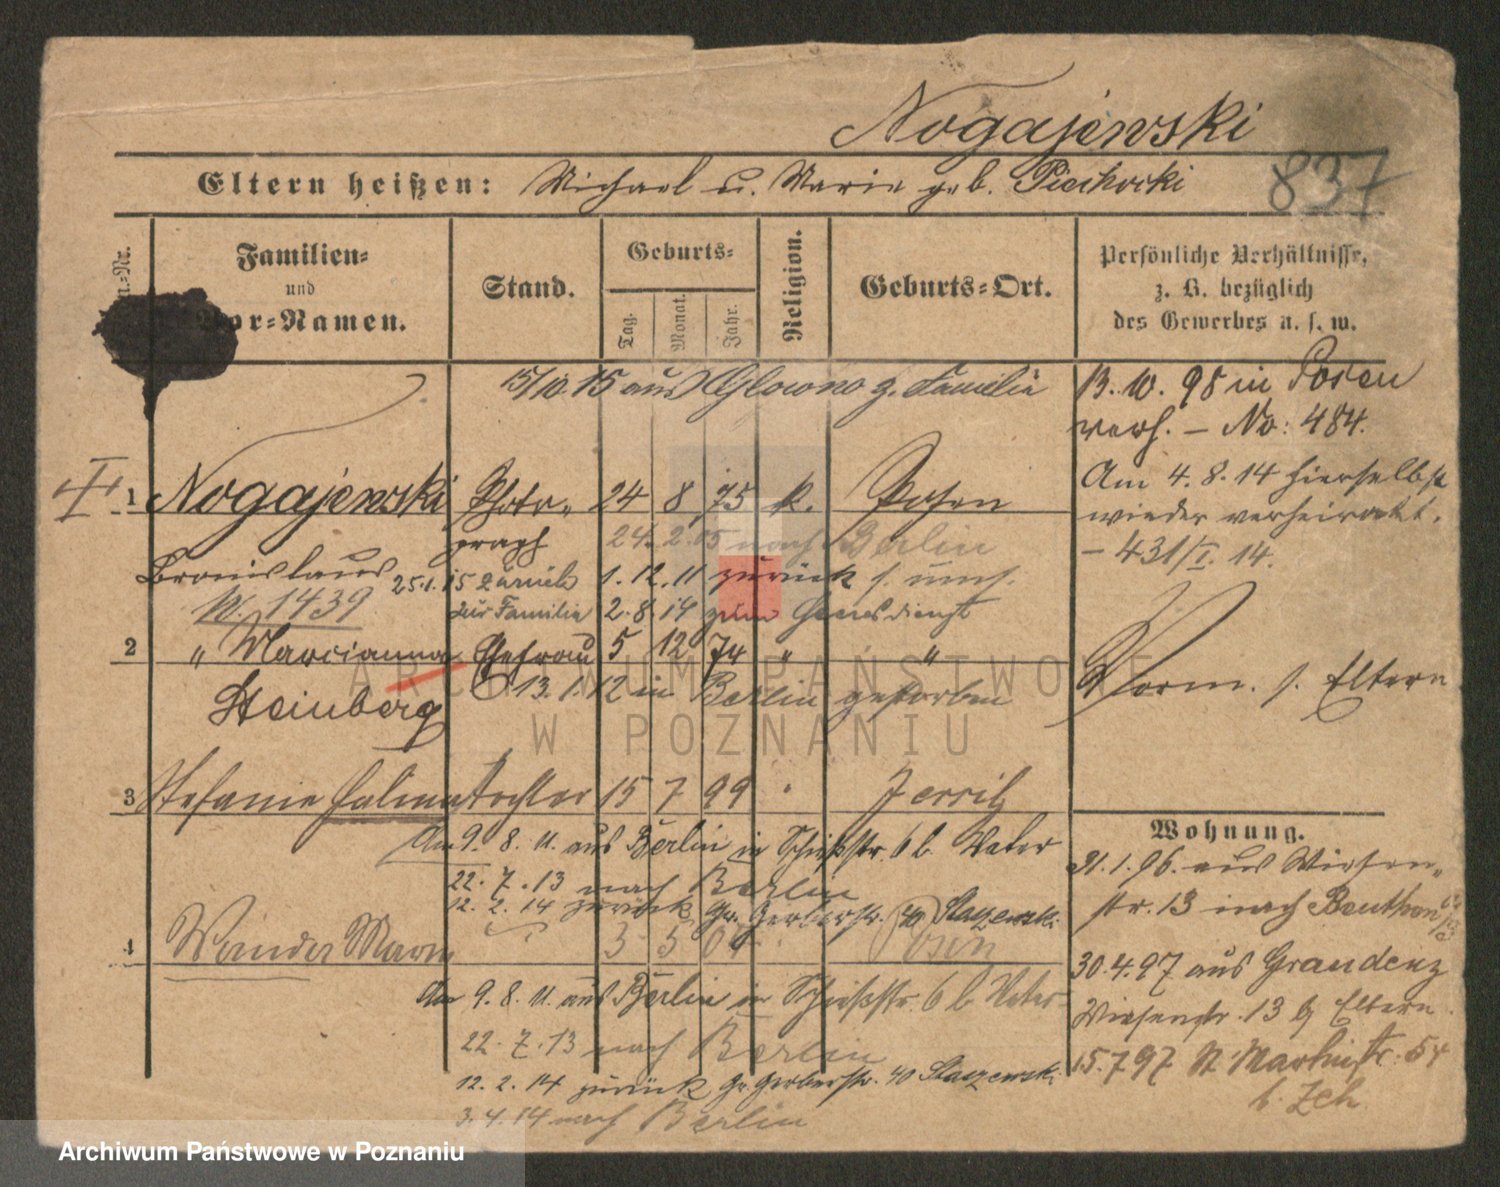 Nogajewski
837
Eltern heißen: Michael u. Marie geb. Piechocki
Familien= und Vor=Namen.
Stand.
Geburts=
Tag. Monat. Jahr.
Religion.
Geburts=Ort.
Persönliche Verhältnisse,
z. B. bezüglich
des Gewerbes u. s. w.
15/10.15 aus Glowno z. Familie
13. 10. 98 in Posen
verh. – No: 484.
Am 4. 8. 14 hierselbst
wieder verheiratet.
– 431/I. 14.
1 Nogajewski Photo= 24 8 75 k. Posen
graph
24. 2. 05 nach Berlin
Bronislaus 25.1.15 zurück 1. 12. 11 zurück s. ums.
N. 1439 zur Familie 2. 8. 14 zum Heeresdienst
2 " Marcianna Ehefrau 5 12 74 " "
Steinberg 13. 1. 12 in Berlin gestorben
Vorm. s. Eltern
3 Stefanie Halina Tochter 15 7 99 " Jersitz
Am 9. 8. 11. aus Berlin in Schießstr. 6 b. Vater
22. 7. 13 nach Berlin
12. 2. 14 zurück Gr. Gerberstr. 40 Staszewski
4 Wanda Maria 3 5 Posen
Am 9. 8. 11. aus Berlin in Schießstr. 6 b. Vater
22. 7. 13 nach Berlin
12. 2. 14 zurück Gr. Gerberstr. 40 Staszewski
3. 4. 14 nach Berlin
Wohnung.
21. 1. 96. aus Wiesen=
str. 13 nach Beuthen
30. 4. 97 aus Graudenz
Wiesenstr. 13 b Eltern
15. 7 97 St. Martinstr. 54
b. Zeh
ARCHIWUM PAŃSTWOWE
W POZNANIU
Archiwum Państwowe w Poznaniu